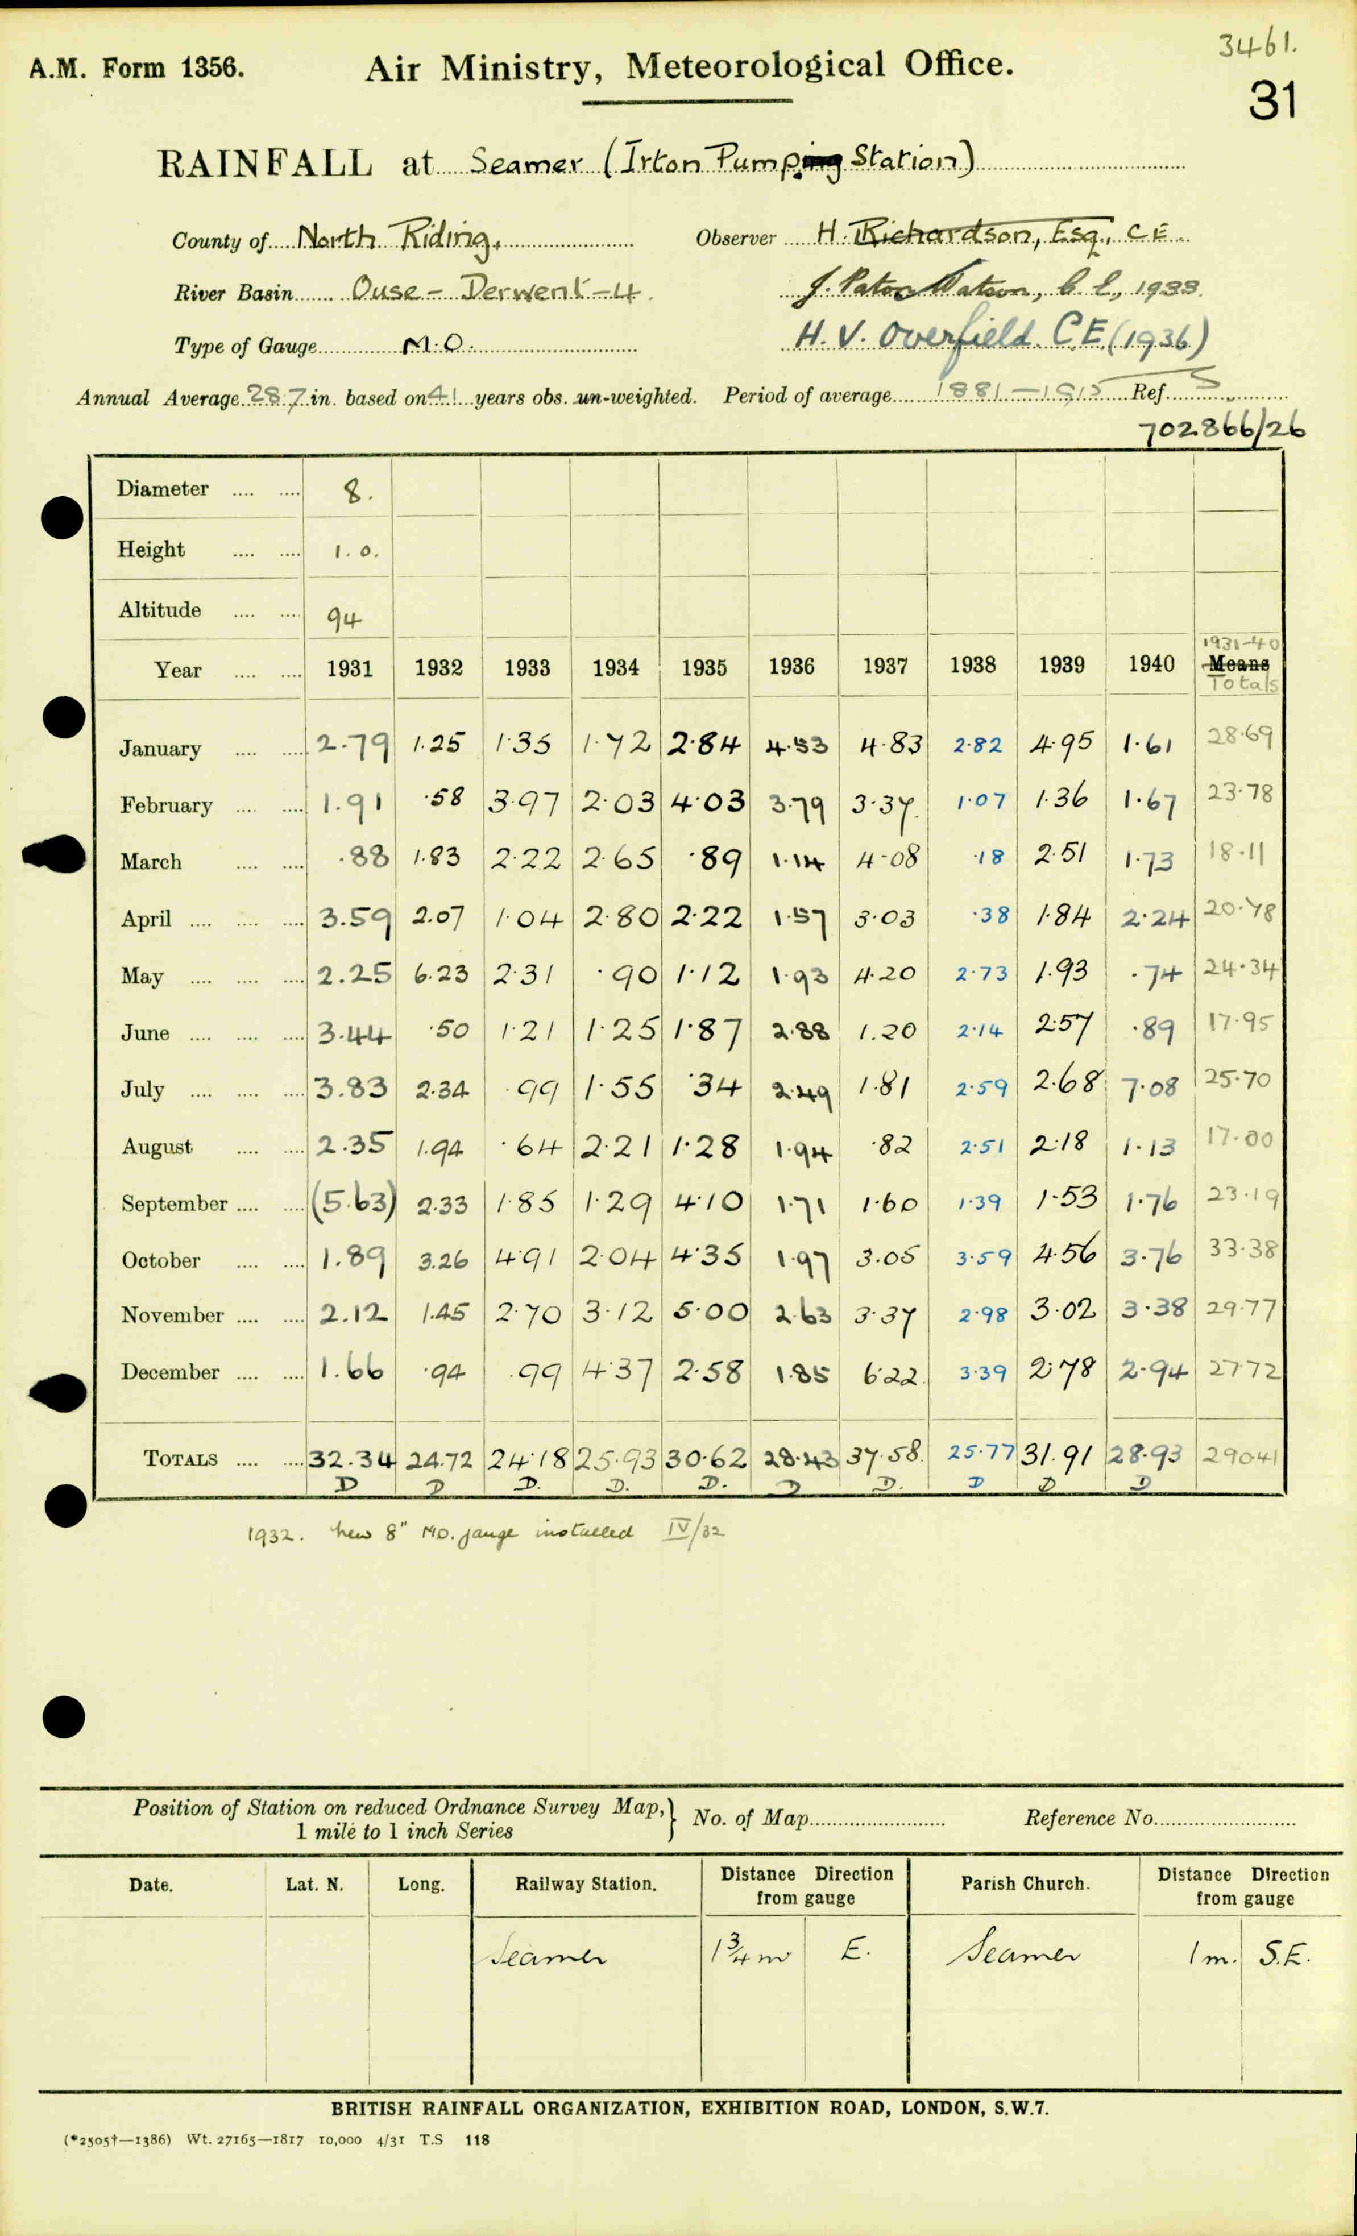 3461.
A.M. Form 1356. Air Ministry, Meteorological Office.
31
RAINFALL at Seamer (Irton Pumping Station)
County of North Riding. Observer H. Richardson, Esq., C.E.
River Basin Ouse - Derwent - 4. J. Paton Watson, C.E., 1933.
Type of Gauge M.O. H. V. Overfield. C.E. (1936)
Annual Average 28.7 in. based on 41 years obs. un-weighted. Period of average 1881-1915 Ref. S
702866/26
Diameter .... .... 8.
Height .... .... 1.0.
Altitude .... .... 94
1931-40
Year .... .... 1931 1932 1933 1934 1935 1936 1937 1938 1939 1940 Means
Totals
January .... .... 2.79 1.25 1.35 1.72 2.84 4.53 4.83 2.82 4.95 1.61 28.69
February .... .... 1.91 .58 3.97 2.03 4.03 3.79 3.37 1.07 1.36 1.67 23.78
March .... .... .88 1.83 2.22 2.65 .89 1.14 4.08 .18 2.51 1.73 18.11
April .... .... .... 3.59 2.07 1.04 2.80 2.22 1.57 3.03 .38 1.84 2.24 20.78
May .... .... .... 2.25 6.23 2.31 .90 1.12 1.93 4.20 2.73 1.93 .74 24.34
June .... .... .... 3.44 .50 1.21 1.25 1.87 2.88 1.20 2.14 2.57 .89 17.95
July .... .... .... 3.83 2.34 .99 1.55 .34 2.49 1.81 2.59 2.68 7.08 25.70
August .... .... 2.35 1.94 .64 2.21 1.28 1.94 .82 2.51 2.18 1.13 17.00
September .... .... (5.63) 2.33 1.85 1.29 4.10 1.71 1.60 1.39 1.53 1.76 23.19
October .... .... 1.89 3.26 4.91 2.04 4.35 1.97 3.05 3.59 4.56 3.76 33.38
November .... .... 2.12 1.45 2.70 3.12 5.00 2.63 3.37 2.98 3.02 3.38 29.77
December .... .... 1.66 .94 .99 4.37 2.58 1.85 6.22 3.39 2.78 2.94 27.72
TOTALS .... .... 32.34 24.72 24.18 25.93 30.62 28.43 37.58 25.77 31.91 28.93 290.41
D D D. D. D. D D. D D D
1932. New 8" MO. gauge installed IV/32
Position of Station on reduced Ordnance Survey Map, } No. of Map Reference No.
1 mile to 1 inch Series
Date. Lat. N. Long. Railway Station. Distance Direction from gauge Parish Church. Distance Direction from gauge
Seamer 1 3/4 m E. Seamer 1 m. S.E.
BRITISH RAINFALL ORGANIZATION, EXHIBITION ROAD, LONDON, S.W.7.
(*2505†—1386) Wt. 27165—1817 10,000 4/31 T.S 118